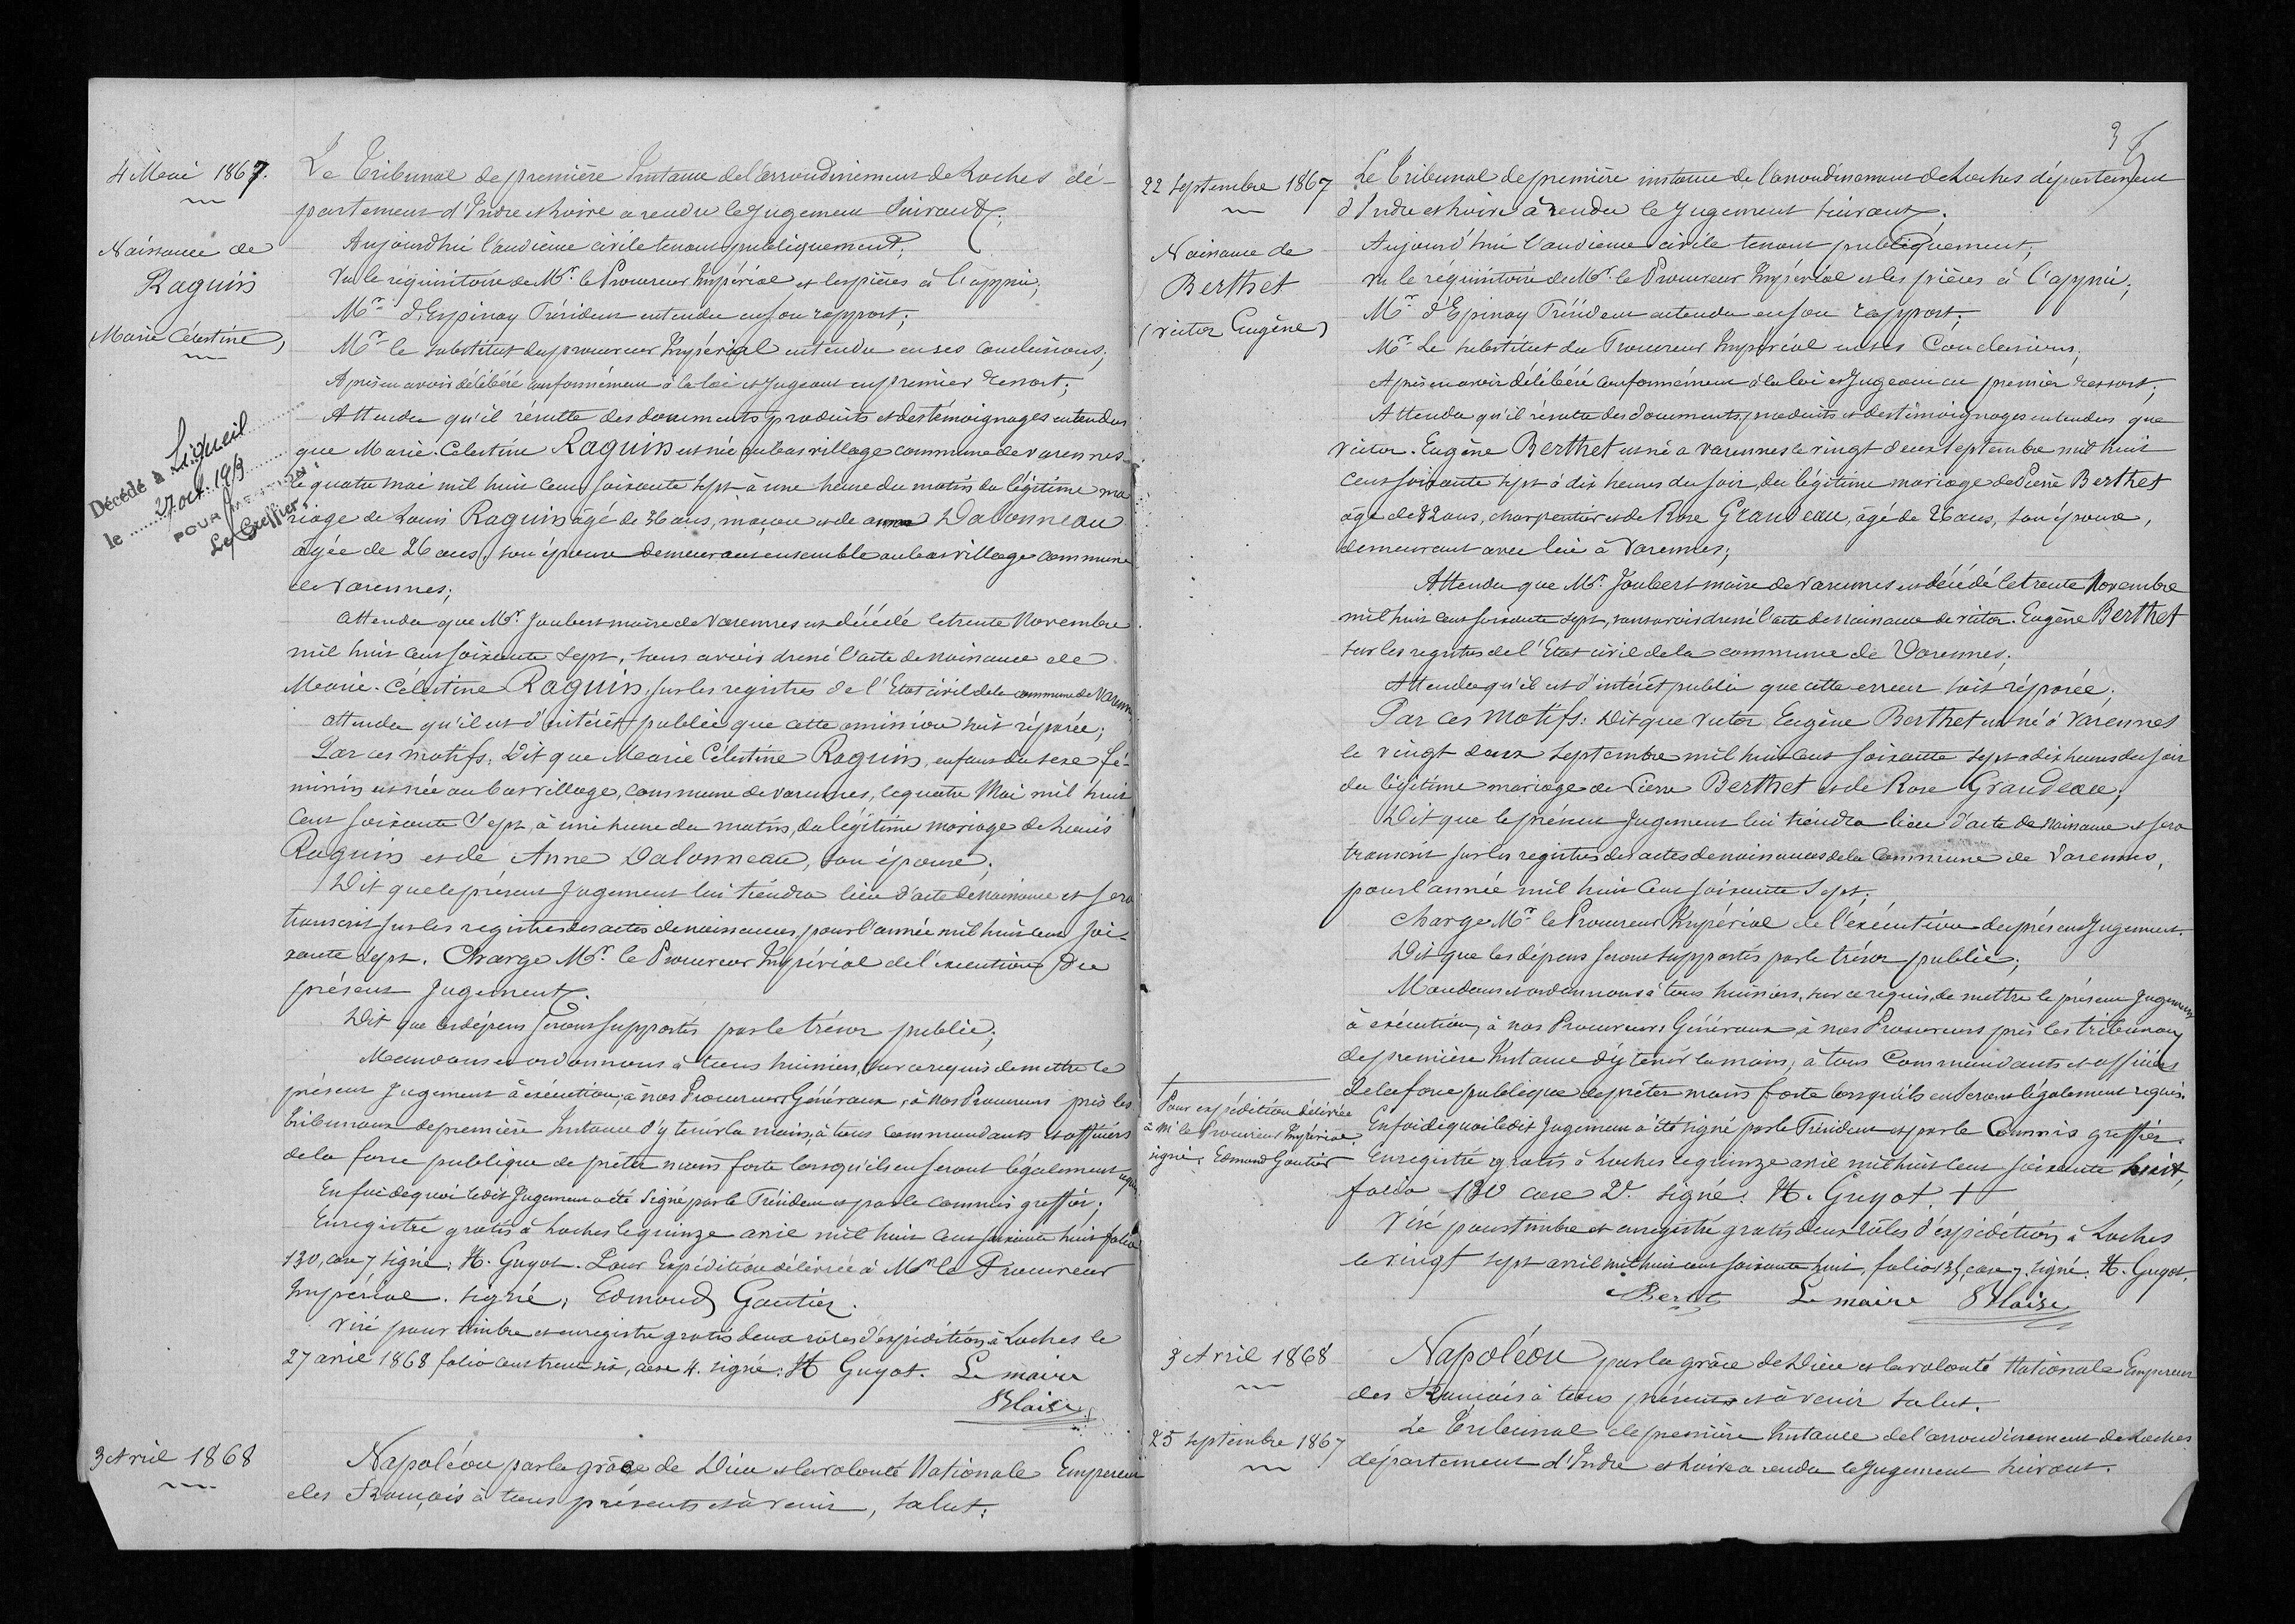 4 Mai 1867.
Naissance de
Raguin
Marie Célestine)
Décédé à Ligueil
le 27 oct. 19
POUR MENTION :
Le Greffier,
Le Tribunal de première Instance de l'arrondissement de Loches dé-
partement d'Indre et Loire a rendu le Jugement Suivant.
Aujourdhui l'audience civile tenant publiquement;
Vu le réquisitoire de Mr. le Procureur Impérial et les pièces à l'appui;
Mr d'Espinay Président entendu en son rapport;
Mr le substitut du procureur Impérial entendu en ses conclusions;
Après en avoir délibéré conformément à la loi et Jugeant en premier ressort;
Attendu qu'il résulte des documents produits et des témoignages entendus
que Marie-Célestine Raguin est née au bas village commune de varennes
le quatre mai mil huit cent soixante sept à une heure du matin du légitime ma
riage de Louis Raguin âgé de 36 ans, maçon et de anne Dalonneau
âgée de 26 ans, son épouse demeurant ensemble au bas village commune
de varennes;
attendu que Mr. Joubert maire de Varennes est décédé le trente Novembre
mil huit cent soixante sept, sans avoir dressé l'acte de naissance de
Marie-Célestine Raguin, sur les registres de l'Etat civil de la commune de Varennes
attendu qu'il est d'intérêt public que cette omission soit réparée;
Par ces motifs: Dit que Marie Célestine Raguin, enfant du sexe fé-
minin est née au bas village, commune de varennes, le quatre Mai mil huit
Cent soixante Sept, à une heure du matin, du légitime mariage de Louis
Raguin et de Anne Dalonneau, son épouse;
Dit que le présent Jugement lui tiendra lieu d'acte de Naissance et sera
transcrit sur les registres des actes de naissances, pour l'année mil huit cent soi-
xante sept. Charge Mr. le Procureur Impérial de l'exécution du
présent Jugement.
Dit que les dépens seront supportés par le trésor public;
Mandons et ordonnons à tous huissiers, sur ce requis de mettre le
présent Jugement à exécution; à nos Procureurs Généraux, à nos Procureurs près les
tribunaux de première Instance d'y tenir la main, à tous commandants et officiers
de la force publique de prêter main forte lorsqu'ils en seront légalement requis.
En foi de quoi le dit Jugement a été Signé par le Président et par le commis greffier;
Enregistré gratis à Loches le quinze avril mil huit Cent soixante huit folio
130, case 7 signé: H. Guyot. Pour Expédition délivrée à Mr le Procureur
Impérial. signé, Edmond Gautier.
Visé pour timbre et enregistré gratis deux rôles d'expédition à Loches le
27 avril 1868 folio cent trente six, case 4. signé: H Guyot. Le maire
Blaise
3 Avril 1868
Napoléon par la grâce de Dieu et la volonté Nationale Empereur
des Français à tous présents et à venir, salut.
3
22 Septembre 1867
Naissance de
Berthet
(victor Eugène)
Le Tribunal de première instance de l'arrondissement de Loches département
d'Indre et Loire à rendu le Jugement suivant.
Aujourd'hui l'audience civile tenant publiquement;
Vu le réquisitoire de Mr. le Procureur Impérial et les pièces à l'appui;
Mr d'Epinay Président entendu en son rapport;
Mr Le substitut du Procureur Impérial en ses Conclusions;
Après en avoir délibéré conformément à la loi et Jugeant en premier ressort;
Attendu qu'il résulte des documents produits et des témoignages entendus que
Victor-Eugène Berthet est né à varennes le vingt deux septembre mil huit
cent soixante sept à dix heures du soir, du légitime mariage de Pierre Berthet
âgé de 32 ans, charpentier et de Rose Grandeau, âgé de 26 ans, son épouse,
demeurant avec lui à varennes;
Attendu que Mr. Joubert maire de varennes est décédé le trente Novembre
mil huit cent soixante sept, sans avoir dressé l'acte de naissance de victor-Eugène Berthet
sur les registres de l'Etat civil de la commune de Varennes;
Attendu qu'il est d'intérêt public que cette erreur soit réparée;
Par ces Motifs: Dit que victor Eugène Berthet est né à Varennes
le vingt deux septembre mil huit cent soixante sept à dix heures du soir
du légitime mariage de Pierre Berthet et de Rose Grandeau;
Dit que le présent Jugement lui tiendra lieu d'acte de Naissance et sera
transcrit sur les registres des actes de naissances de la Commune de Varennes,
pour l'année mil huit Cent soixante Sept;
Charge Mr le Procureur Impérial de l'exécution du présent Jugement.
Dit que les dépens seront supportés par le trésor public;
Mandons et ordonnons à tous huissiers, sur ce requis, de mettre le présent Jugement
à exécution, à nos Procureurs Généraux, à nos Procureurs près les tribunaux
de première Instance d'y tenir la main, à tous Commandants et officiers
de la force publique de prêter main forte lorsqu'ils en seront légalement requis.
En foi de quoi le dit Jugement a été signé par le Président et par le Commis greffier.
Enregistré gratis à Loches le quinze avril mil huit Cent soixante huit,
folio 130 case Vo. signé: H. Guyot +
Visé pour timbre et enregistré gratis deux rôles d'expédition à Loches
le vingt sept avril mil huit cent soixante huit, folio 135, case 7. signé: H. Guyot.
Le maire Blaise
+ Pour expédition délivrée
à Mr le Procureur Impérial.
signé: Edmond Gautier
3 Avril 1868
25 Septembre 1867
Napoléon par la grâce de Dieu et la volonté Nationale Empereur
des Français à tous présents et à venir salut.
Le Tribunal de première Instance de l'arrondissement de Loches
département d'Indre et Loire a rendu le Jugement suivant.